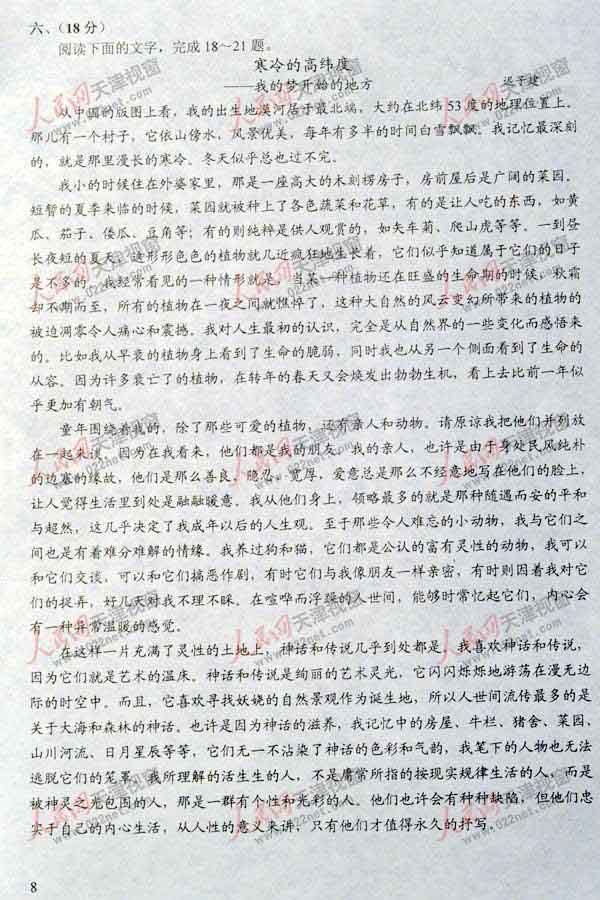 六、(18分)
阅读下面的文字，完成18～21题。
寒冷的高纬度
——我的梦开始的地方 迟子建
从中国的版图上看，我的出生地漠河居于最北端，大约在北纬53度的地理位置上。
那儿有一个村子，它依山傍水，风景优美，每年有多半的时间白雪飘飘。我记忆最深刻
的，就是那里漫长的寒冷。冬天似乎总也过不完。
我小的时候住在外婆家里，那是一座高大的木刻楞房子，房前屋后是广阔的菜园。
短暂的夏季来临的时候，菜园就被种上了各色蔬菜和花草，有的是让人吃的东西，如黄
瓜、茄子、倭瓜、豆角等；有的则纯粹是供人观赏的，如矢车菊、爬山虎等等。一到昼
长夜短的夏天，这形形色色的植物就几近疯狂地生长着，它们似乎知道属于它们的日子
是不多的。我经常看见的一种情形就是，当某一种植物还在旺盛的生命期的时候，秋霜
却不期而至，所有的植物在一夜之间就憔悴了，这种大自然的风云变幻所带来的植物的
被迫凋零令人痛心和震撼。我对人生最初的认识，完全是从自然界的一些变化而感悟来
的。比如我从早衰的植物身上看到了生命的脆弱，同时我也从另一个侧面看到了生命的
从容。因为许多衰亡了的植物，在转年的春天又会焕发出勃勃生机，看上去比前一年似
乎更加有朝气。
童年围绕着我的，除了那些可爱的植物，还有亲人和动物。请原谅我把他们并列放
在一起来谈。因为在我看来，他们都是我的朋友。我的亲人，也许是由于身处民风纯朴
的边塞的缘故，他们是那么善良、隐忍、宽厚，爱意总是那么不经意地写在他们的脸上，
让人觉得生活里到处是融融暖意。我从他们身上，领略最多的就是那种随遇而安的平和
与超然，这几乎决定了我成年以后的人生观。至于那些令人难忘的小动物，我与它们之
间也是有着难分难解的情缘。我养过狗和猫，它们都是公认的富有灵性的动物，我可以
和它们交谈，可以和它们搞恶作剧，有时它们与我像朋友一样亲密，有时则因着我对它
们的捉弄，好几天对我不理不睬。在喧哗而浮躁的人世间，能够时常忆起它们，内心会
有一种异常温暖的感觉。
在这样一片充满了灵性的土地上，神话和传说几乎到处都是。我喜欢神话和传说，
因为它们就是艺术的温床。神话和传说是绚丽的艺术灵光，它闪闪烁烁地游荡在漫无边
际的时空中。而且，它喜欢寻找妖娆的自然景观作为诞生地，所以人世间流传最多的是
关于大海和森林的神话。也许是因为神话的滋养，我记忆中的房屋、牛栏、猪舍、菜园、
山川河流、日月星辰等等，它们无一不沾染了神话的色彩和气韵，我笔下的人物也无法
逃脱它们的笼罩。我所理解的活生生的人，不是庸常所指的按现实规律生活的人，而是
被神灵之光包围的人，那是一群有个性和光彩的人。他们也许会有种种缺陷，但他们忠
实于自己的内心生活，从人性的意义来讲，只有他们才值得永久的抒写。
8
人民网天津视窗
www.022net.com